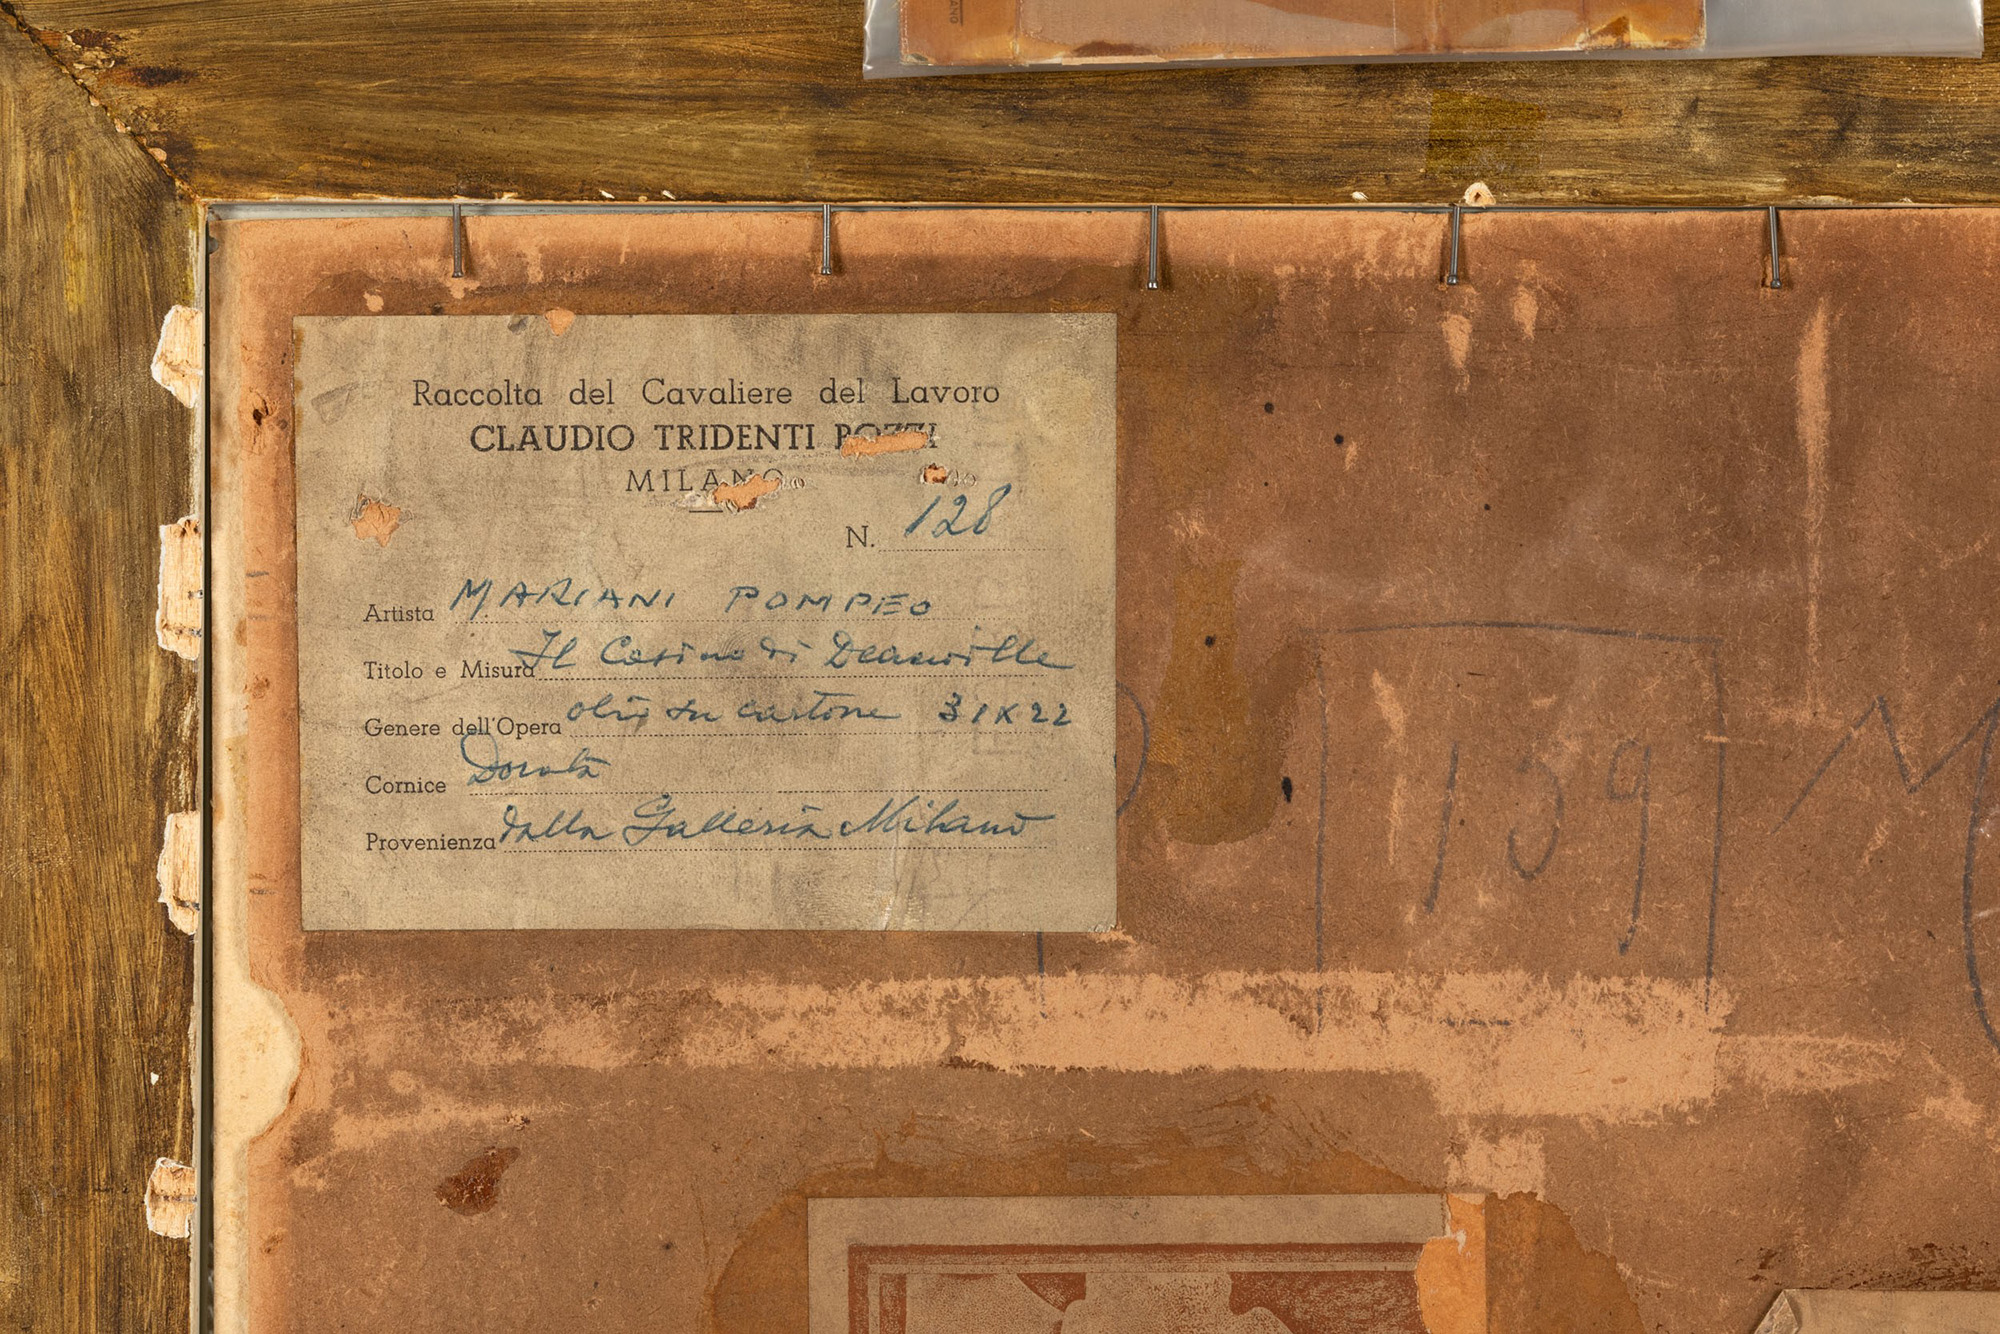 Raccolta del Cavaliere del Lavoro
CLAUDIO TRIDENTI POZZI
MILANO
N. 128
Artista MARIANI POMPEO
Titolo e Misura Il Casino di Deauville
Genere dell'Opera olio su cartone 31x22
Cornice Dorata
Provenienza dalla Galleria Milano
139